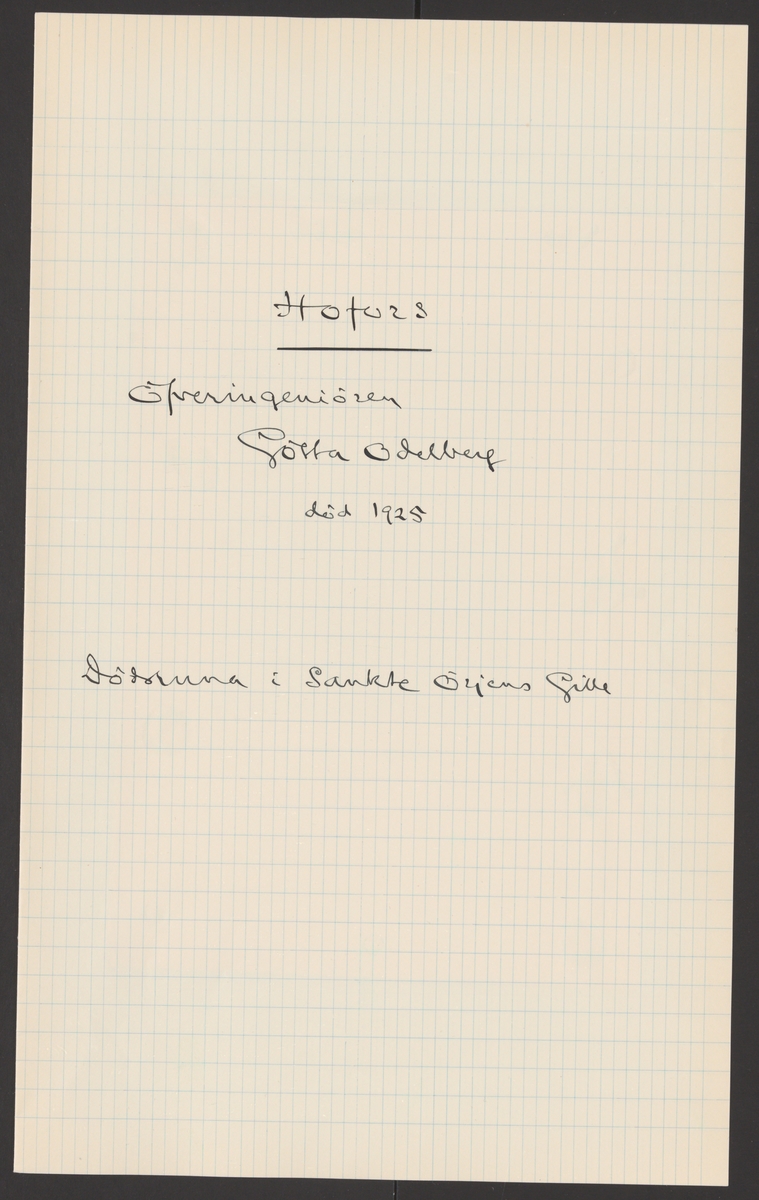 Hofors
Öfveringeniören
Gösta Odelberg
död 1925
Dödsruna i Sankte Örjens Gille